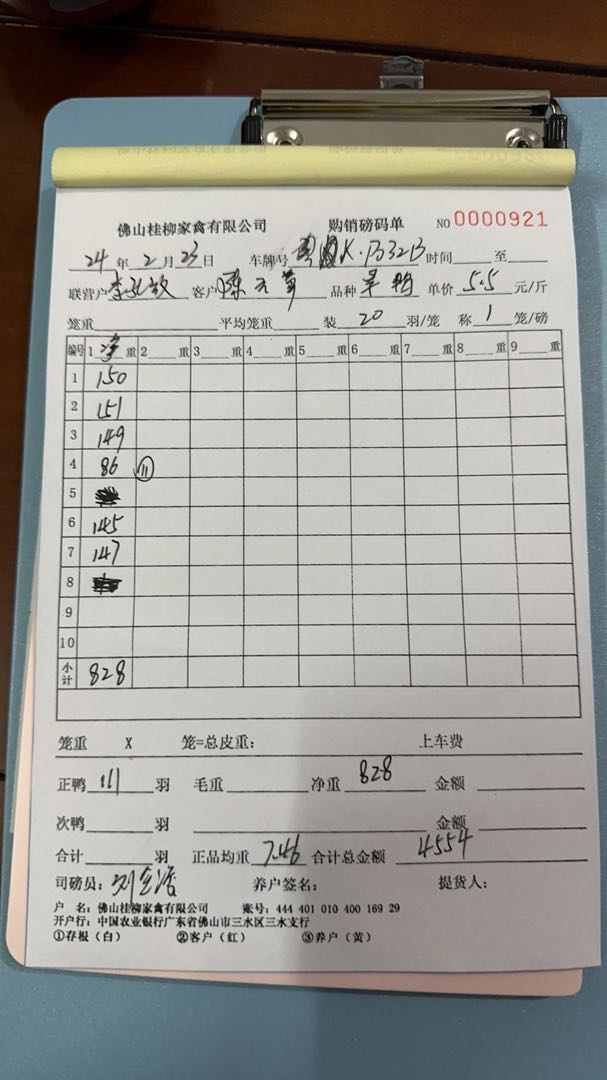 佛山桂柳家禽有限公司 购销磅码单 NO 0000921
24年2月23日 车牌号 时间 至
联营户 客户 陈 品种 单价 5.5 元/斤
笼重 平均笼重 装 20 羽/笼 称 1 笼/磅
编号 1 净 重 2 重 3 重 4 重 5 重 6 重 7 重 8 重 9 重
1 150
2 151
3 149
4 86 ⑪
5
6 145
7 147
8
9
10
小计 828
笼重 X 笼=总皮重： 上车费
正鸭 111 羽 毛重 净重 828 金额
次鸭 羽 金额
合计 羽 正品均重 7.46 合计总金额 4554
司磅员： 刘 养户签名： 提货人：
户 名：佛山桂柳家禽有限公司 账号：444 401 010 400 169 29
开户行：中国农业银行广东省佛山市三水区三水支行
①存根（白） ②客户（红） ③养户（黄）